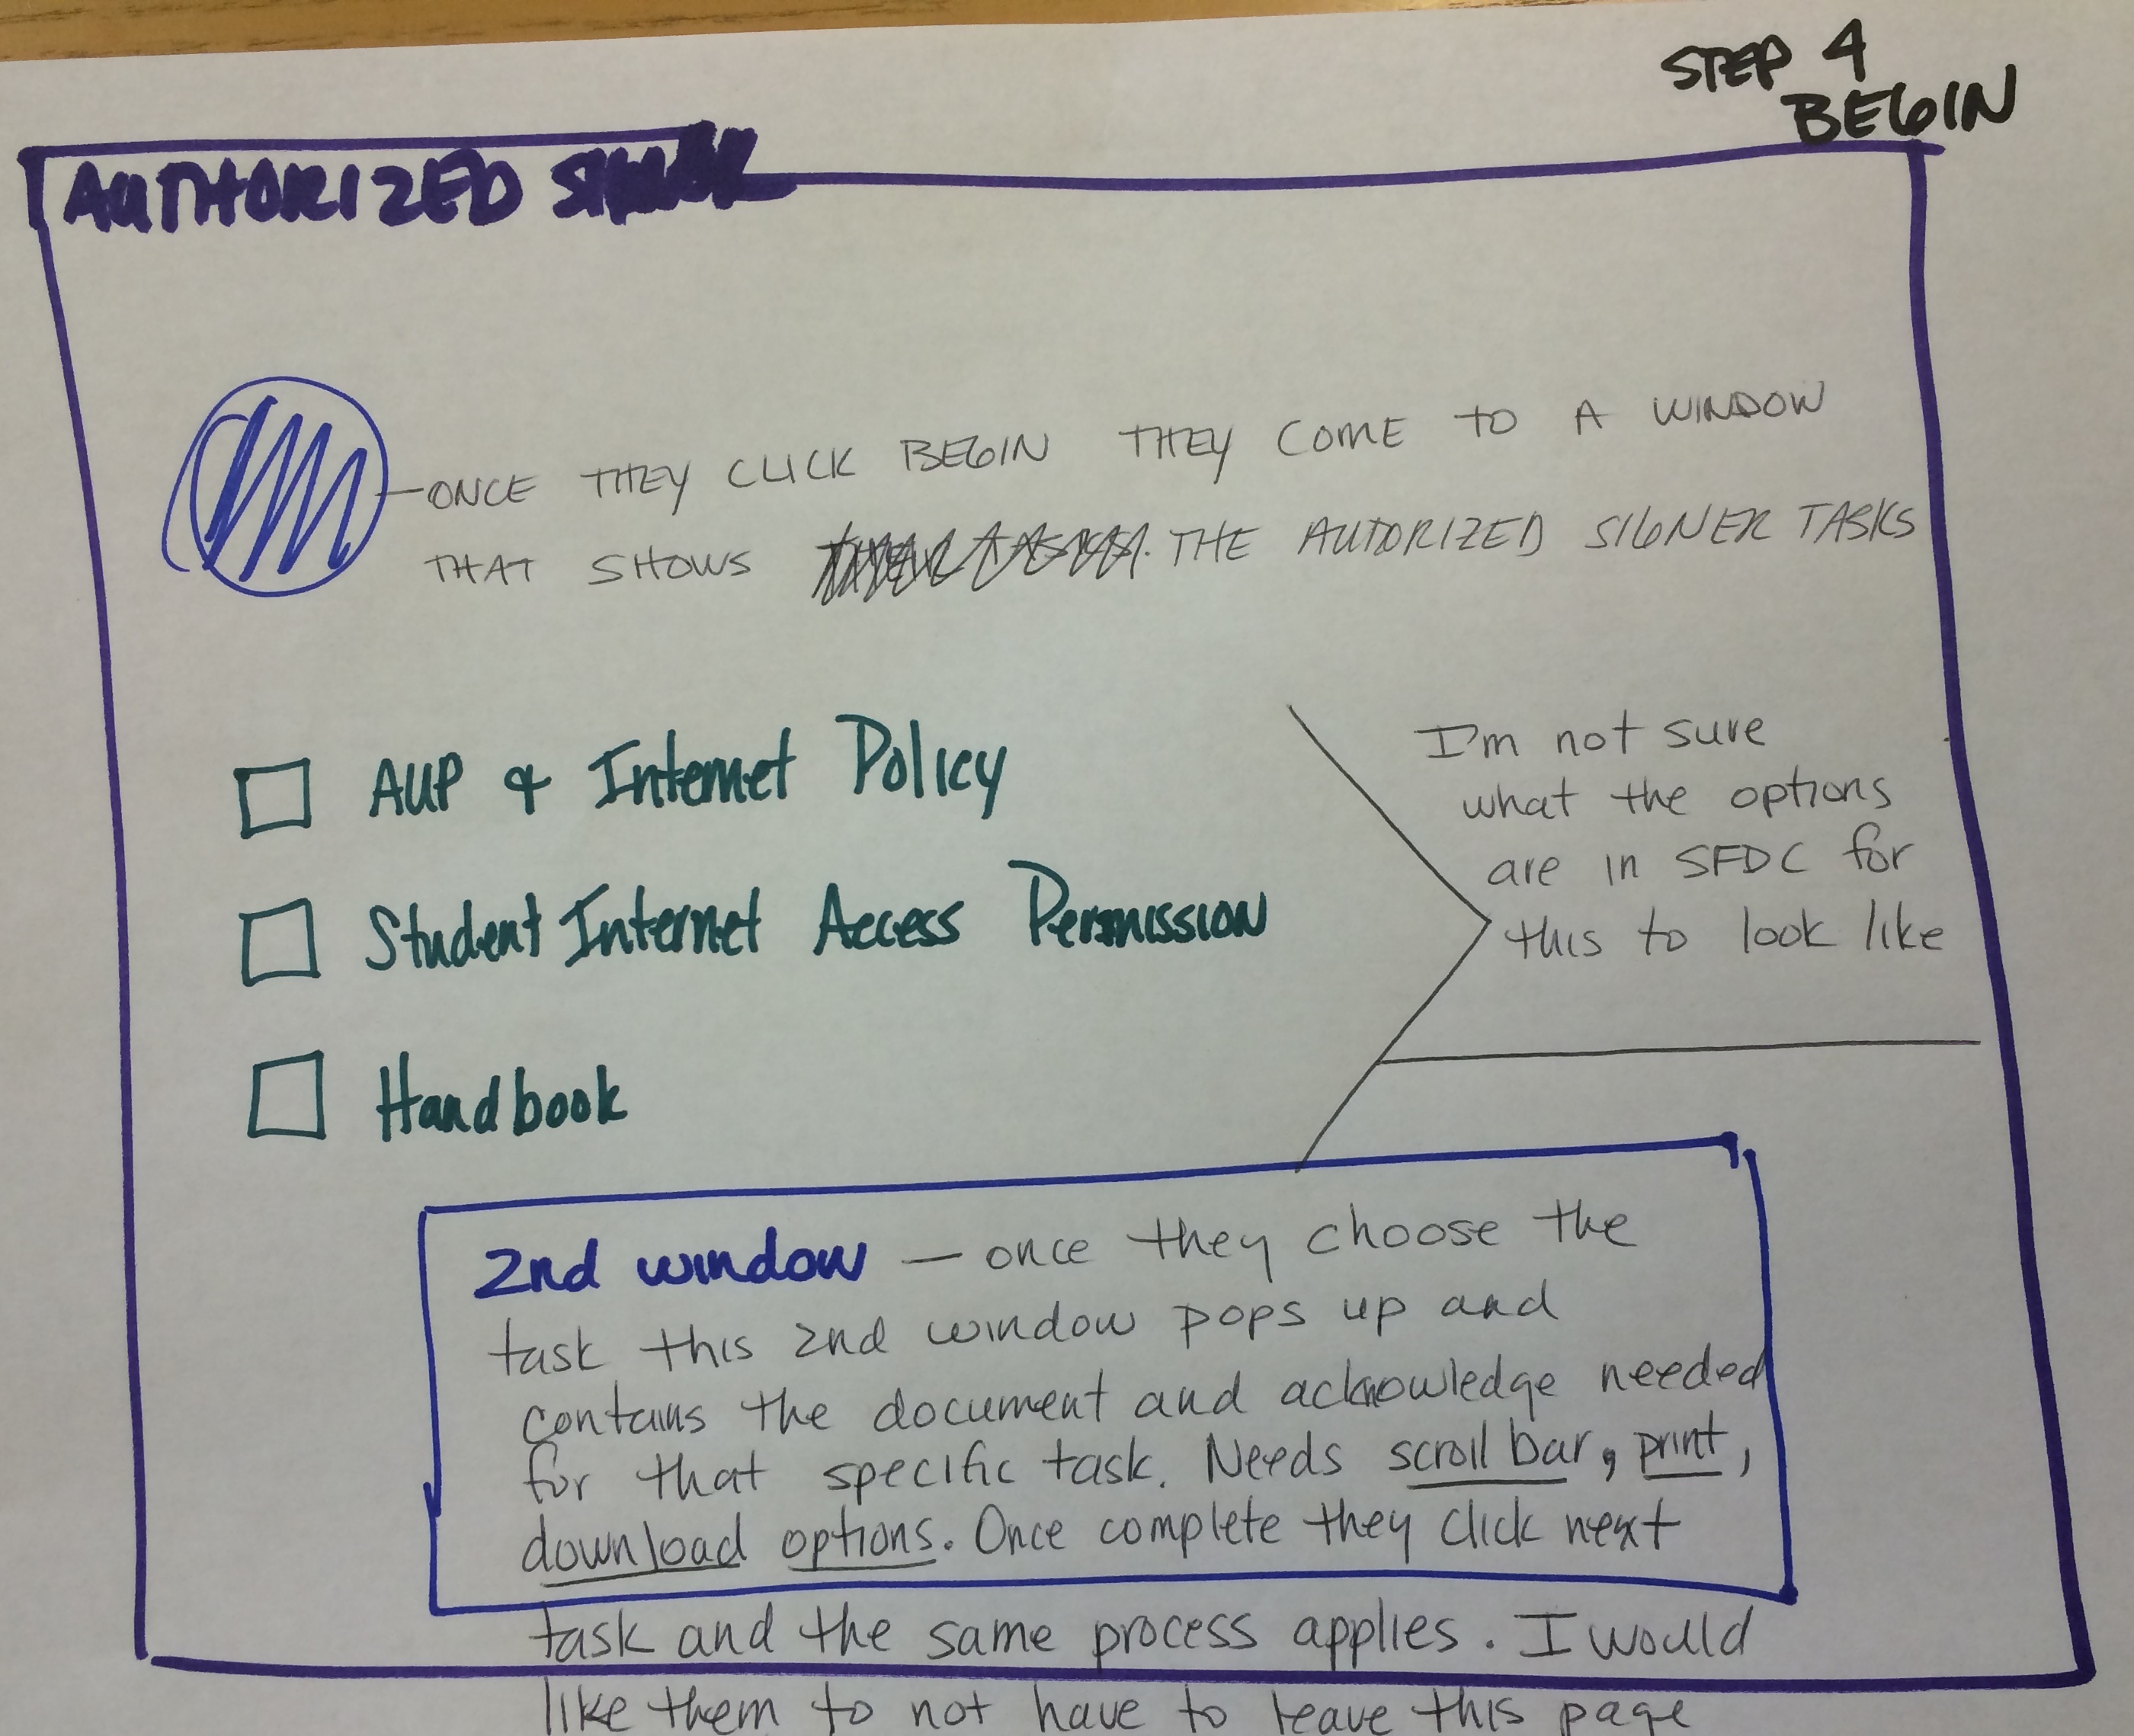 STEP 4
BEGIN
AUTHORIZED
ONCE THEY CLICK BEGIN THEY COME TO A WINDOW
THAT SHOWS THE AUTORIZED SIGNER TASKS
AUP & Internet Policy
Student Internet Access Permission
Handbook
I'm not sure
what the options
are in SFDC for
this to look like
2nd window — once they choose the
task this 2nd window pops up and
contains the document and acknowledge needed
for that specific task. Needs scroll bar, print,
download options. Once complete they click next
task and the same process applies. I would
like them to not have to leave this page